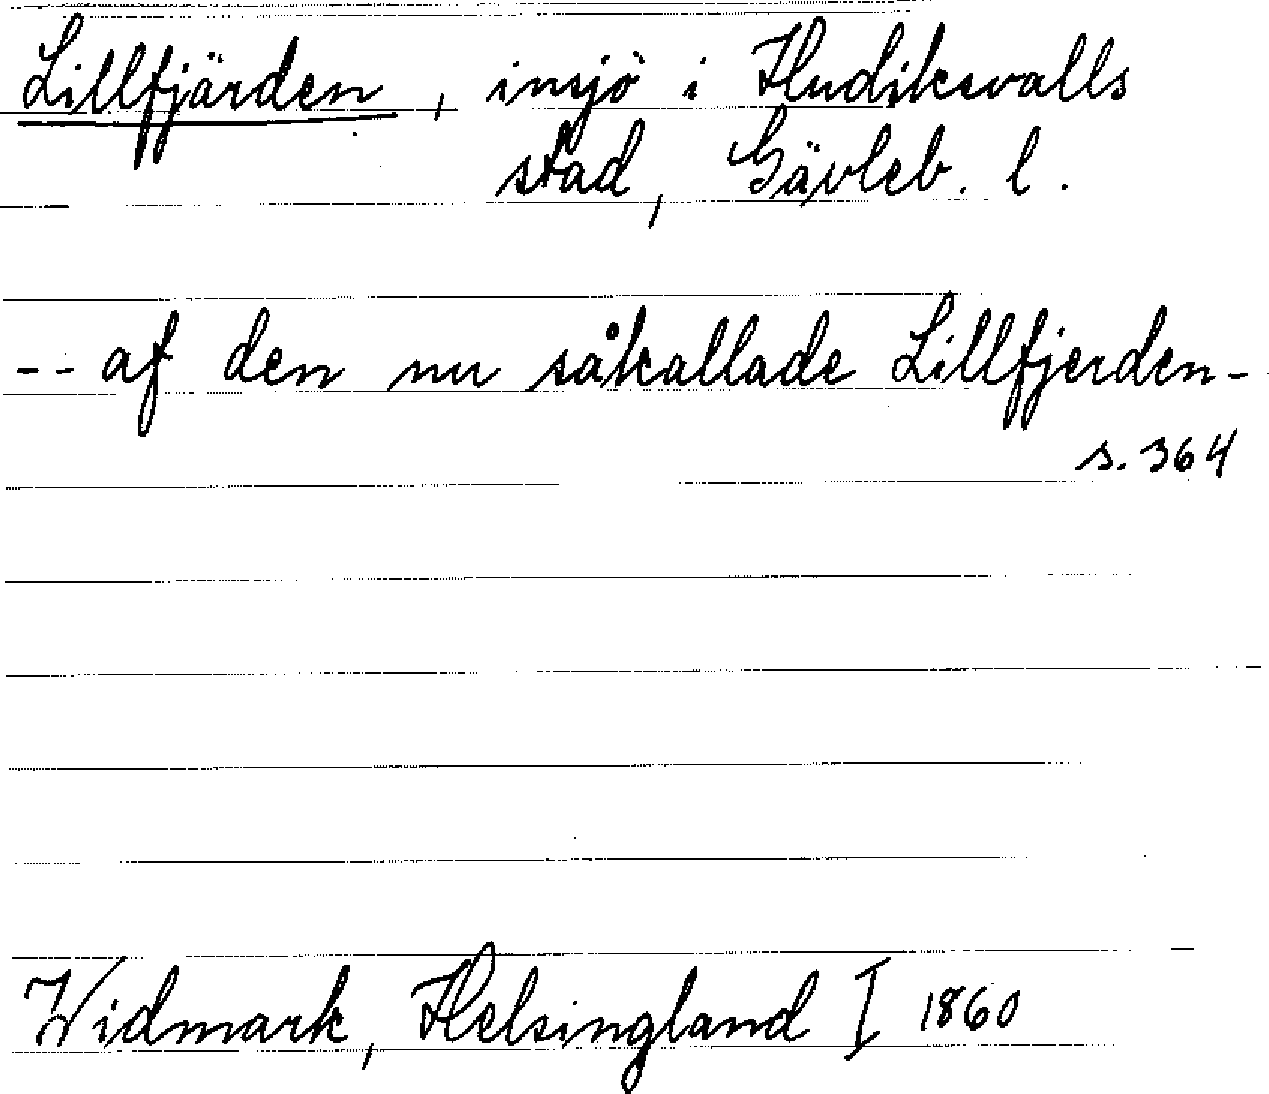 Lillfjärden, insjö i Hudiksvalls
stad, Gävleb. l.
-- af den nu såkallade Lillfjerden -
s. 364
Widmark, Helsingland I 1860